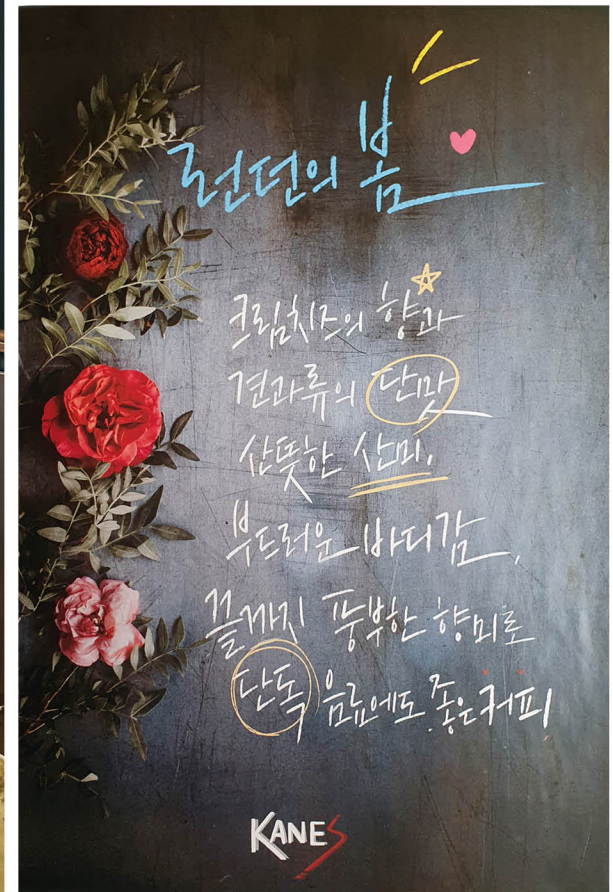 런던의 봄
크림치즈의 향과
견과류의 단맛
산뜻한 산미.
부드러운 바디감,
끝까지 풍부한 향미로
단독 음료에도 좋은 커피!
KANES